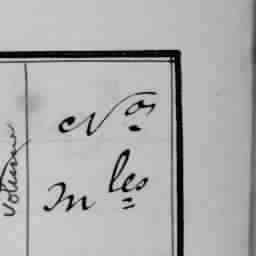 Volume
Nos
M les